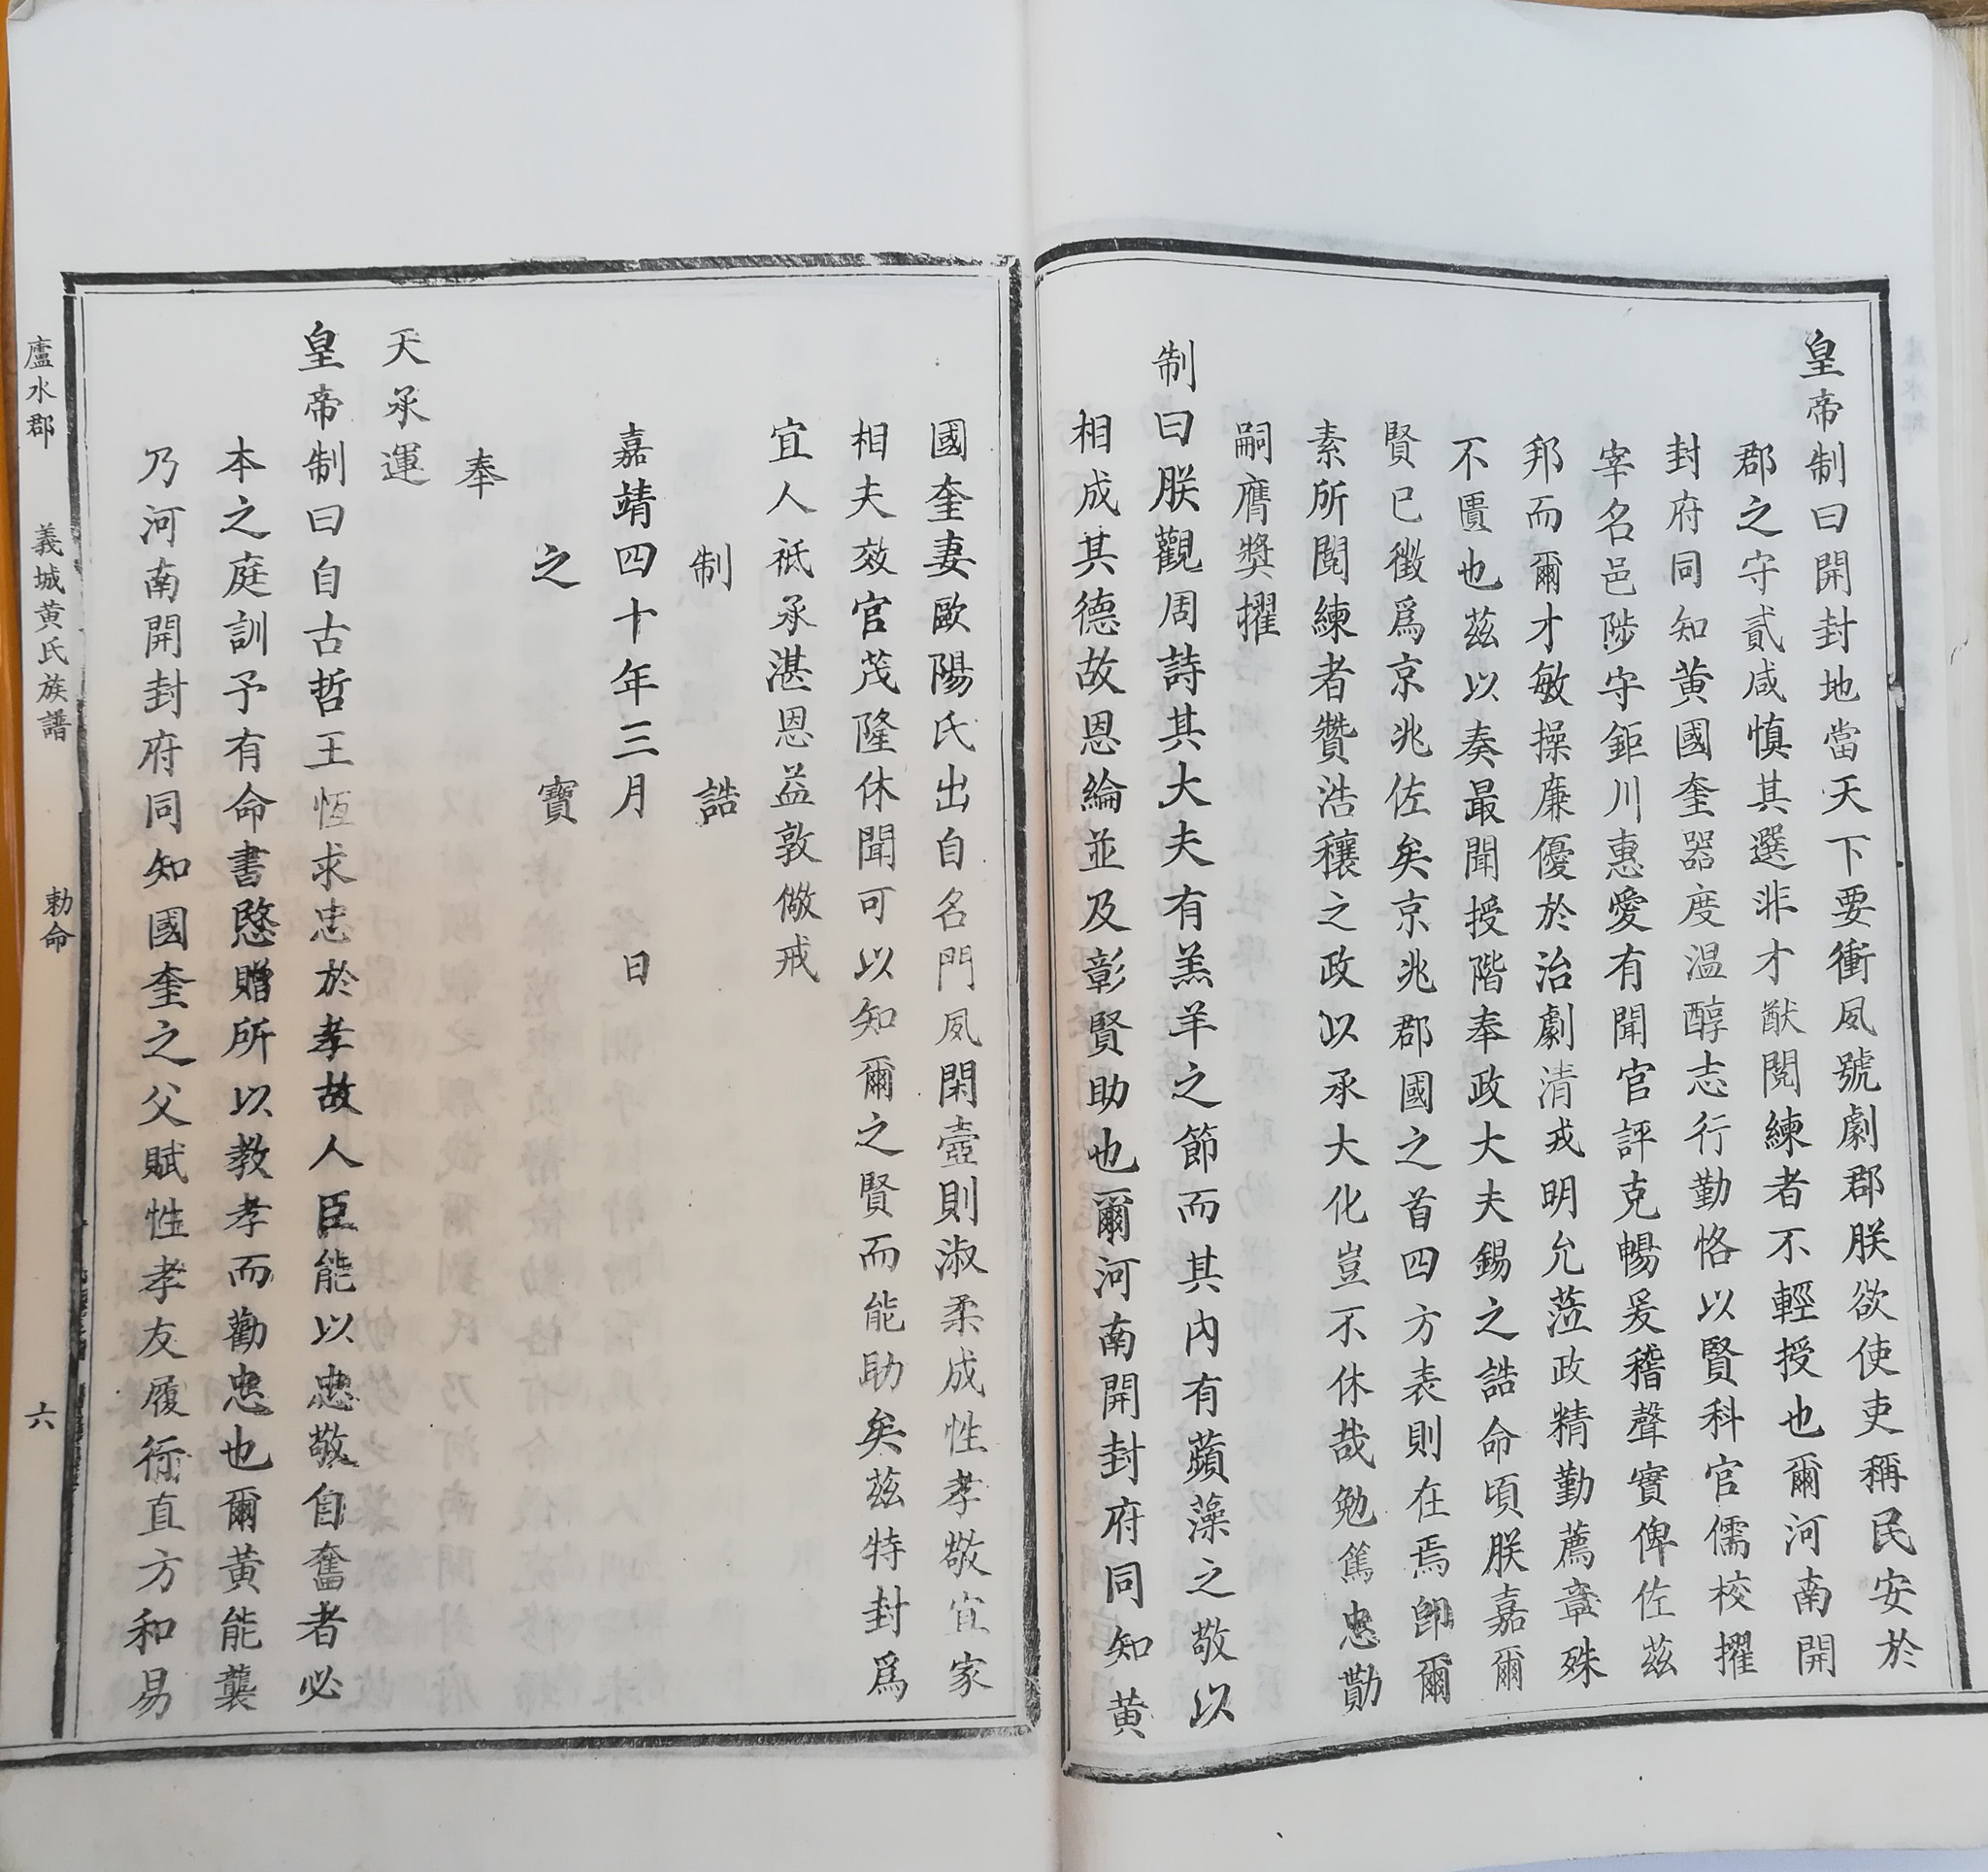 皇帝制曰開封地當天下要衝夙號劇郡朕欲使吏稱民安於
郡之守貳咸慎其選非才猷閱練者不輕授也爾河南開
封府同知黄國奎器度温醇志行勤恪以賢科官儒校擢
宰名邑陟守鉅川惠愛有聞官評克暢爰稽聲實俾佐兹
邦而爾才敏操廉優於治劇清戎明允蒞政精勤薦章殊
不匱也兹以奏最聞授階奉政大夫錫之誥命頃朕嘉爾
賢已徵爲京兆佐矣京兆郡國之首四方表則在焉卽爾
素所閱練者贊浩穰之政以承大化豈不休哉勉篤忠勩
嗣膺獎擢
制曰朕觀周詩其大夫有羔羊之節而其内有蘋藻之敬以
相成其德故恩綸並及彰賢助也爾河南開封府同知黄
國奎妻歐陽氏出自名門夙閑壼則淑柔成性孝敬宜家
相夫效官茂隆休聞可以知爾之賢而能助矣兹特封爲
宜人祗承湛恩益敦儆戒
制誥
嘉靖四十年三月 日
之寶
奉
天承運
皇帝制曰自古哲王恆求忠於孝故人臣能以忠敬自奮者必
本之庭訓予有命書愍贈所以教孝而勸忠也爾黃能襲
乃河南開封府同知國奎之父賦性孝友履行直方和易
廬水郡 義城黄氏族譜 勅命 六